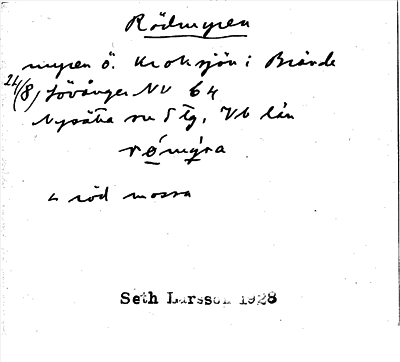 Rödmyren
myren ö. Kroksjön i Brände
24/8, Lövånger NV 64
Nysätra sn 5 tg, Vb län
rómýra
< röd mossa
Seth Larsson 1928